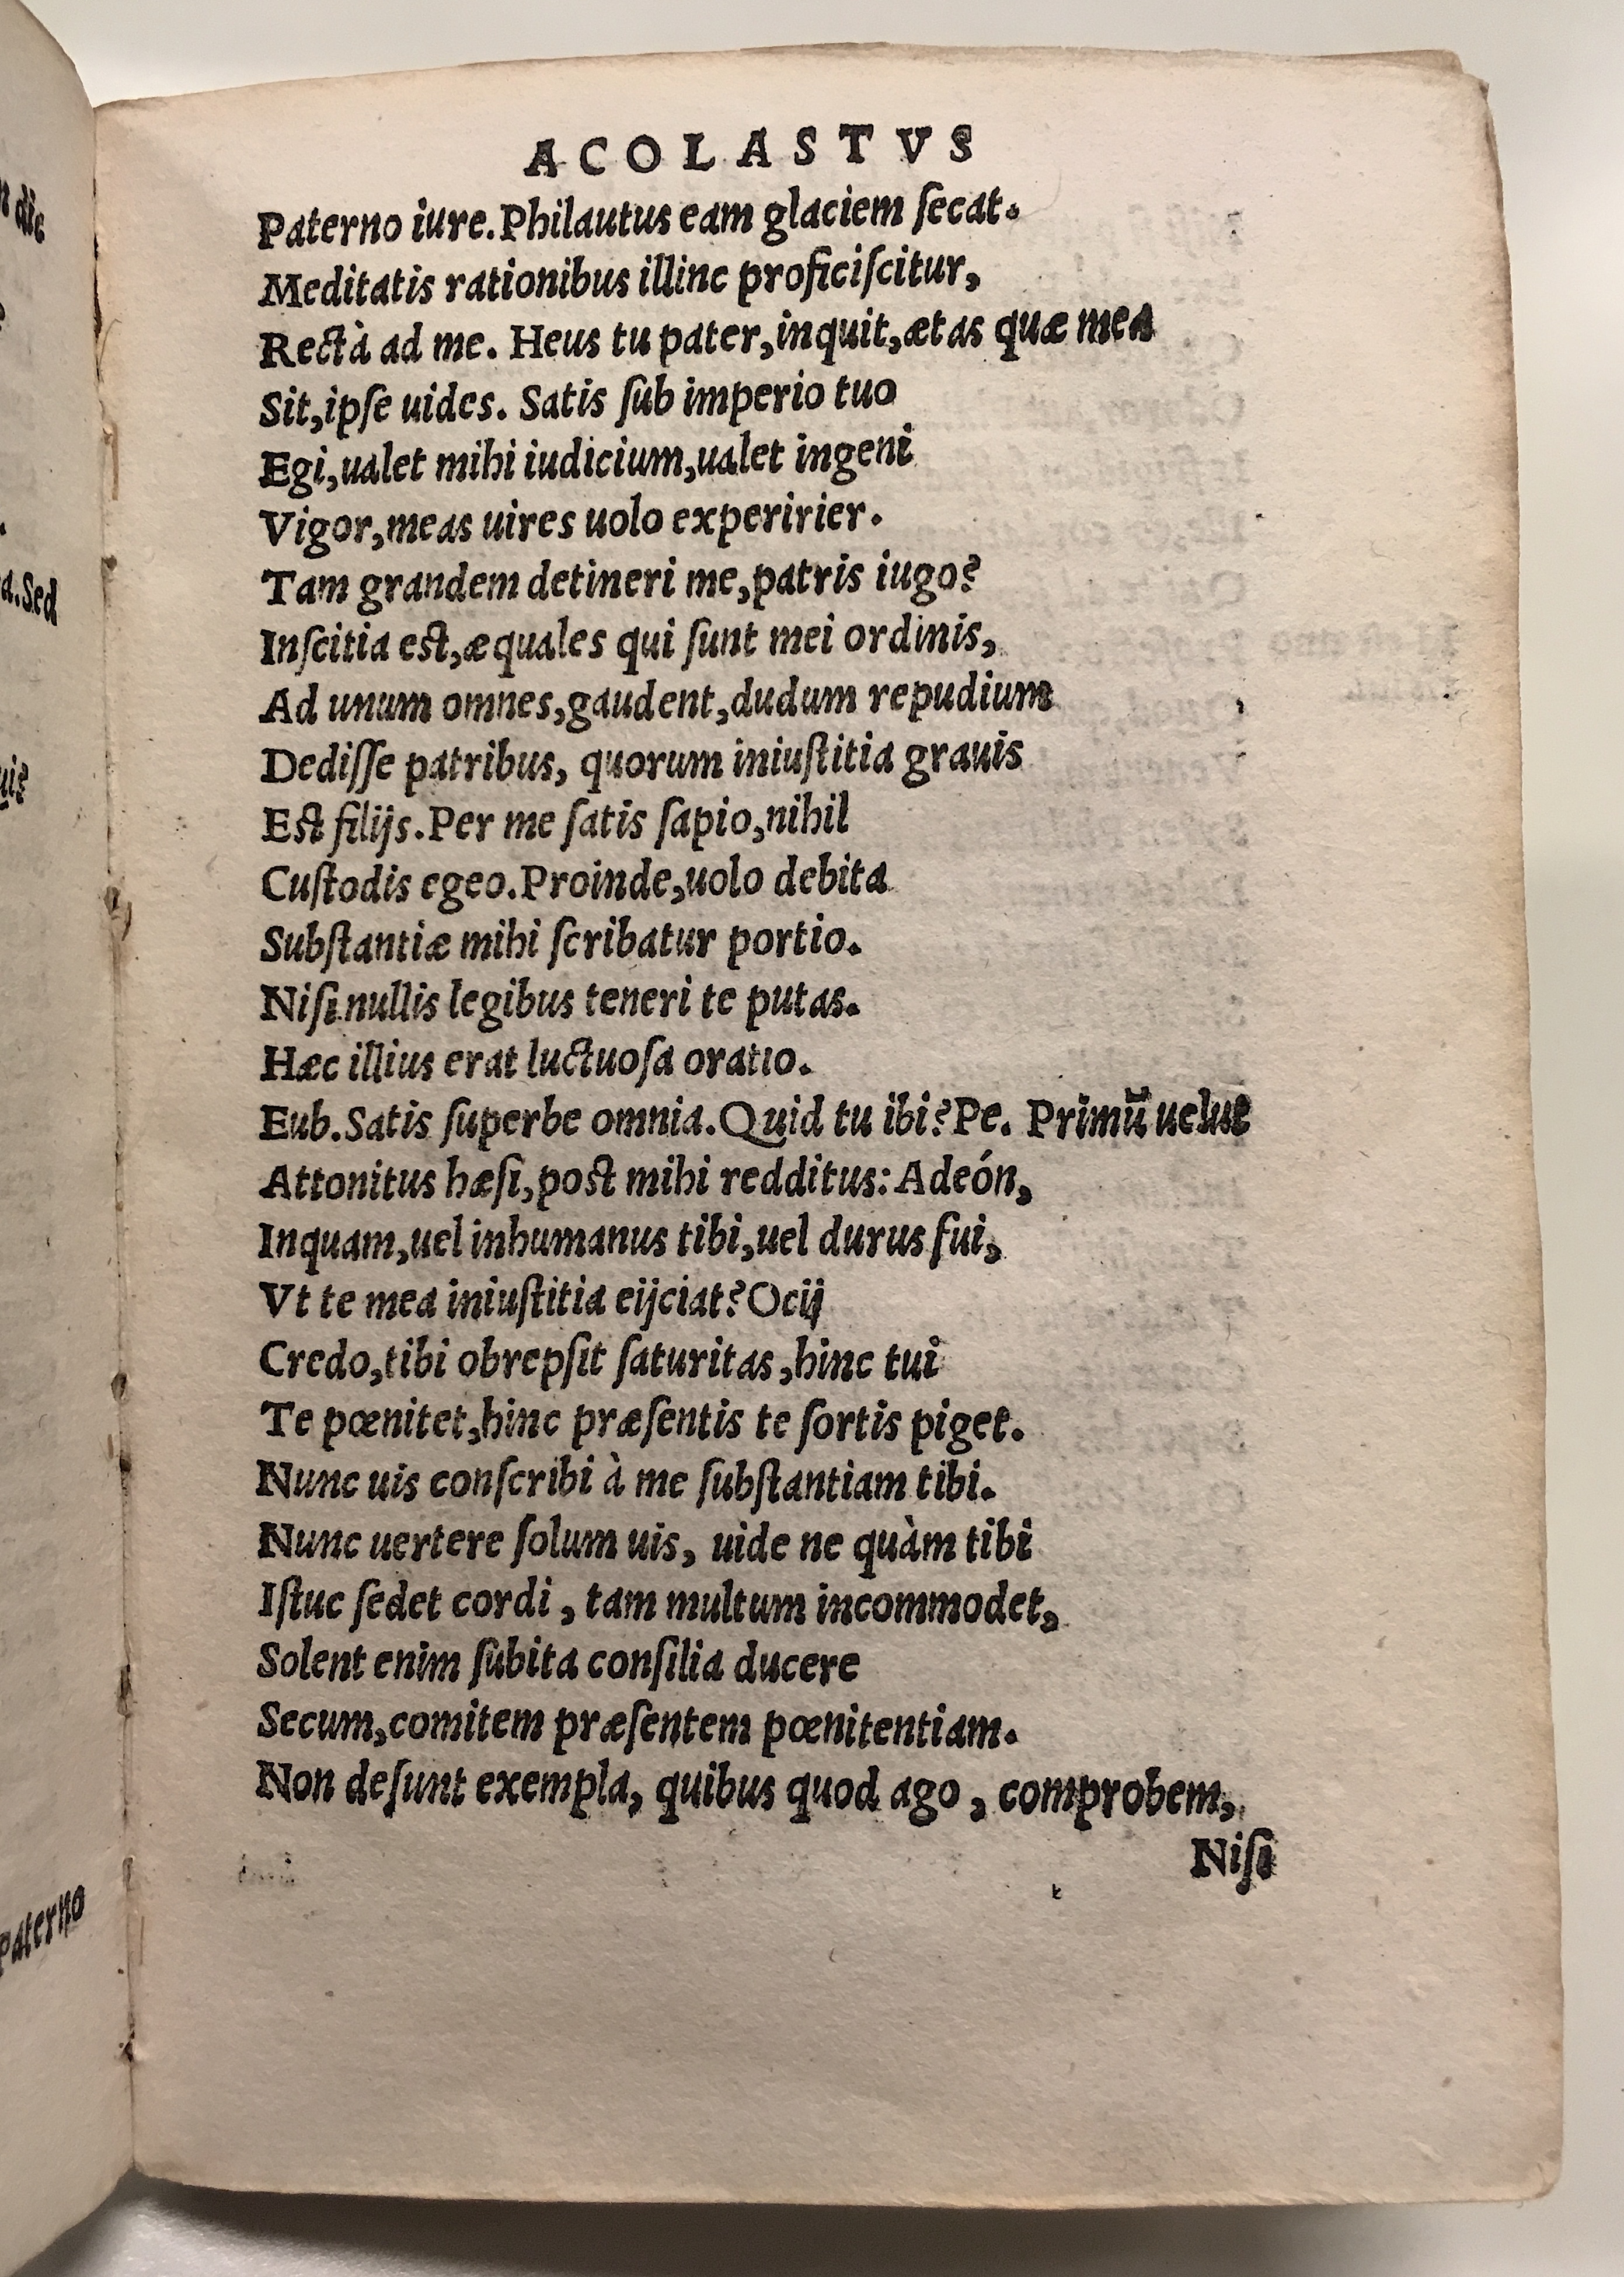 ACOLASTVS
Paterno iure.Philautus eam glaciem ſecat.
Meditatis rationibus illinc proficiſcitur,
Rectà ad me. Heus tu pater,inquit,ætas quæ mea
Sit,ipſe uides. Satis ſub imperio tuo
Egi,ualet mihi iudicium,ualet ingeni
Vigor,meas uires uolo experirier.
Tam grandem detineri me,patris iugo?
Inſcitia est,æquales qui ſunt mei ordinis,
Ad unum omnes,gaudent,dudum repudium
Dediſſe patribus, quorum iniuſtitia grauis
Est filijs.Per me ſatis ſapio,nihil
Cuſtodis egeo.Proinde,uolo debita
Subſtantiæ mihi ſcribatur portio.
Niſi nullis legibus teneri te putas.
Hæc illius erat luctuoſa oratio.
Eub.Satis ſuperbe omnia.Quid tu ibi?Pe. Primū uelut
Attonitus hæſi,post mihi redditus:Adeón,
Inquam,uel inhumanus tibi,uel durus fui,
Vt te mea iniuſtitia eijciat?Ocij
Credo,tibi obrepſit ſaturitas,hinc tui
Te pœnitet,hinc præſentis te ſortis piget.
Nunc uis conſcribi à me ſubſtantiam tibi.
Nunc uertere ſolum uis, uide ne quàm tibi
Iſtuc ſedet cordi, tam multum incommodet,
Solent enim ſubita conſilia ducere
Secum,comitem præſentem pœnitentiam.
Non deſunt exempla, quibus quod ago, comprobem,
Niſi
dic
a.Sed
uis
Paterno